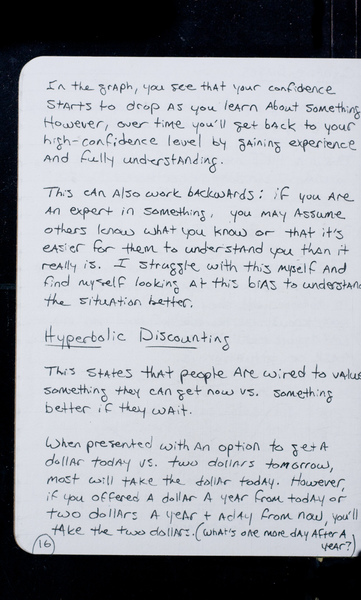 In the graph, you see that your confidence
starts to drop as you learn about something
However, over time you'll get back to your
high-confidence level by gaining experience
and fully understanding.
This can also work backwards: if you are
an expert in something, you may assume
others know what you know or that it's
easier for them to understand you than it
really is. I struggle with this myself and
find myself looking at this bias to understand
the situation better.
Hyperbolic Discounting
This states that people are wired to value
something they can get now vs. something
better if they wait.
When presented with an option to get a
dollar today vs. two dollars tomorrow,
most will take the dollar today. However,
if you offered a dollar a year from today or
two dollars a year + a day from now, you'll
take the two dollars. (What's one more day after a
year?)
16